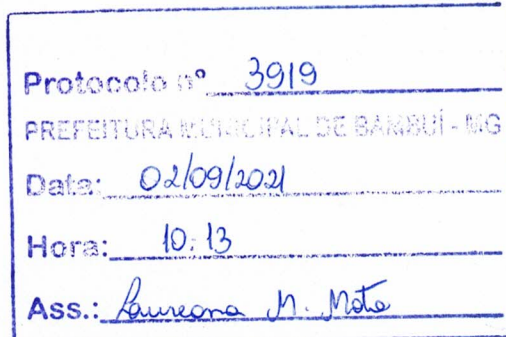 Protocolo nº 3919
PREFEITURA MUNICIPAL DE BAMBUÍ - MG
Data: 02/09/2021
Hora: 10:13
Ass.: Laureana M. Mota